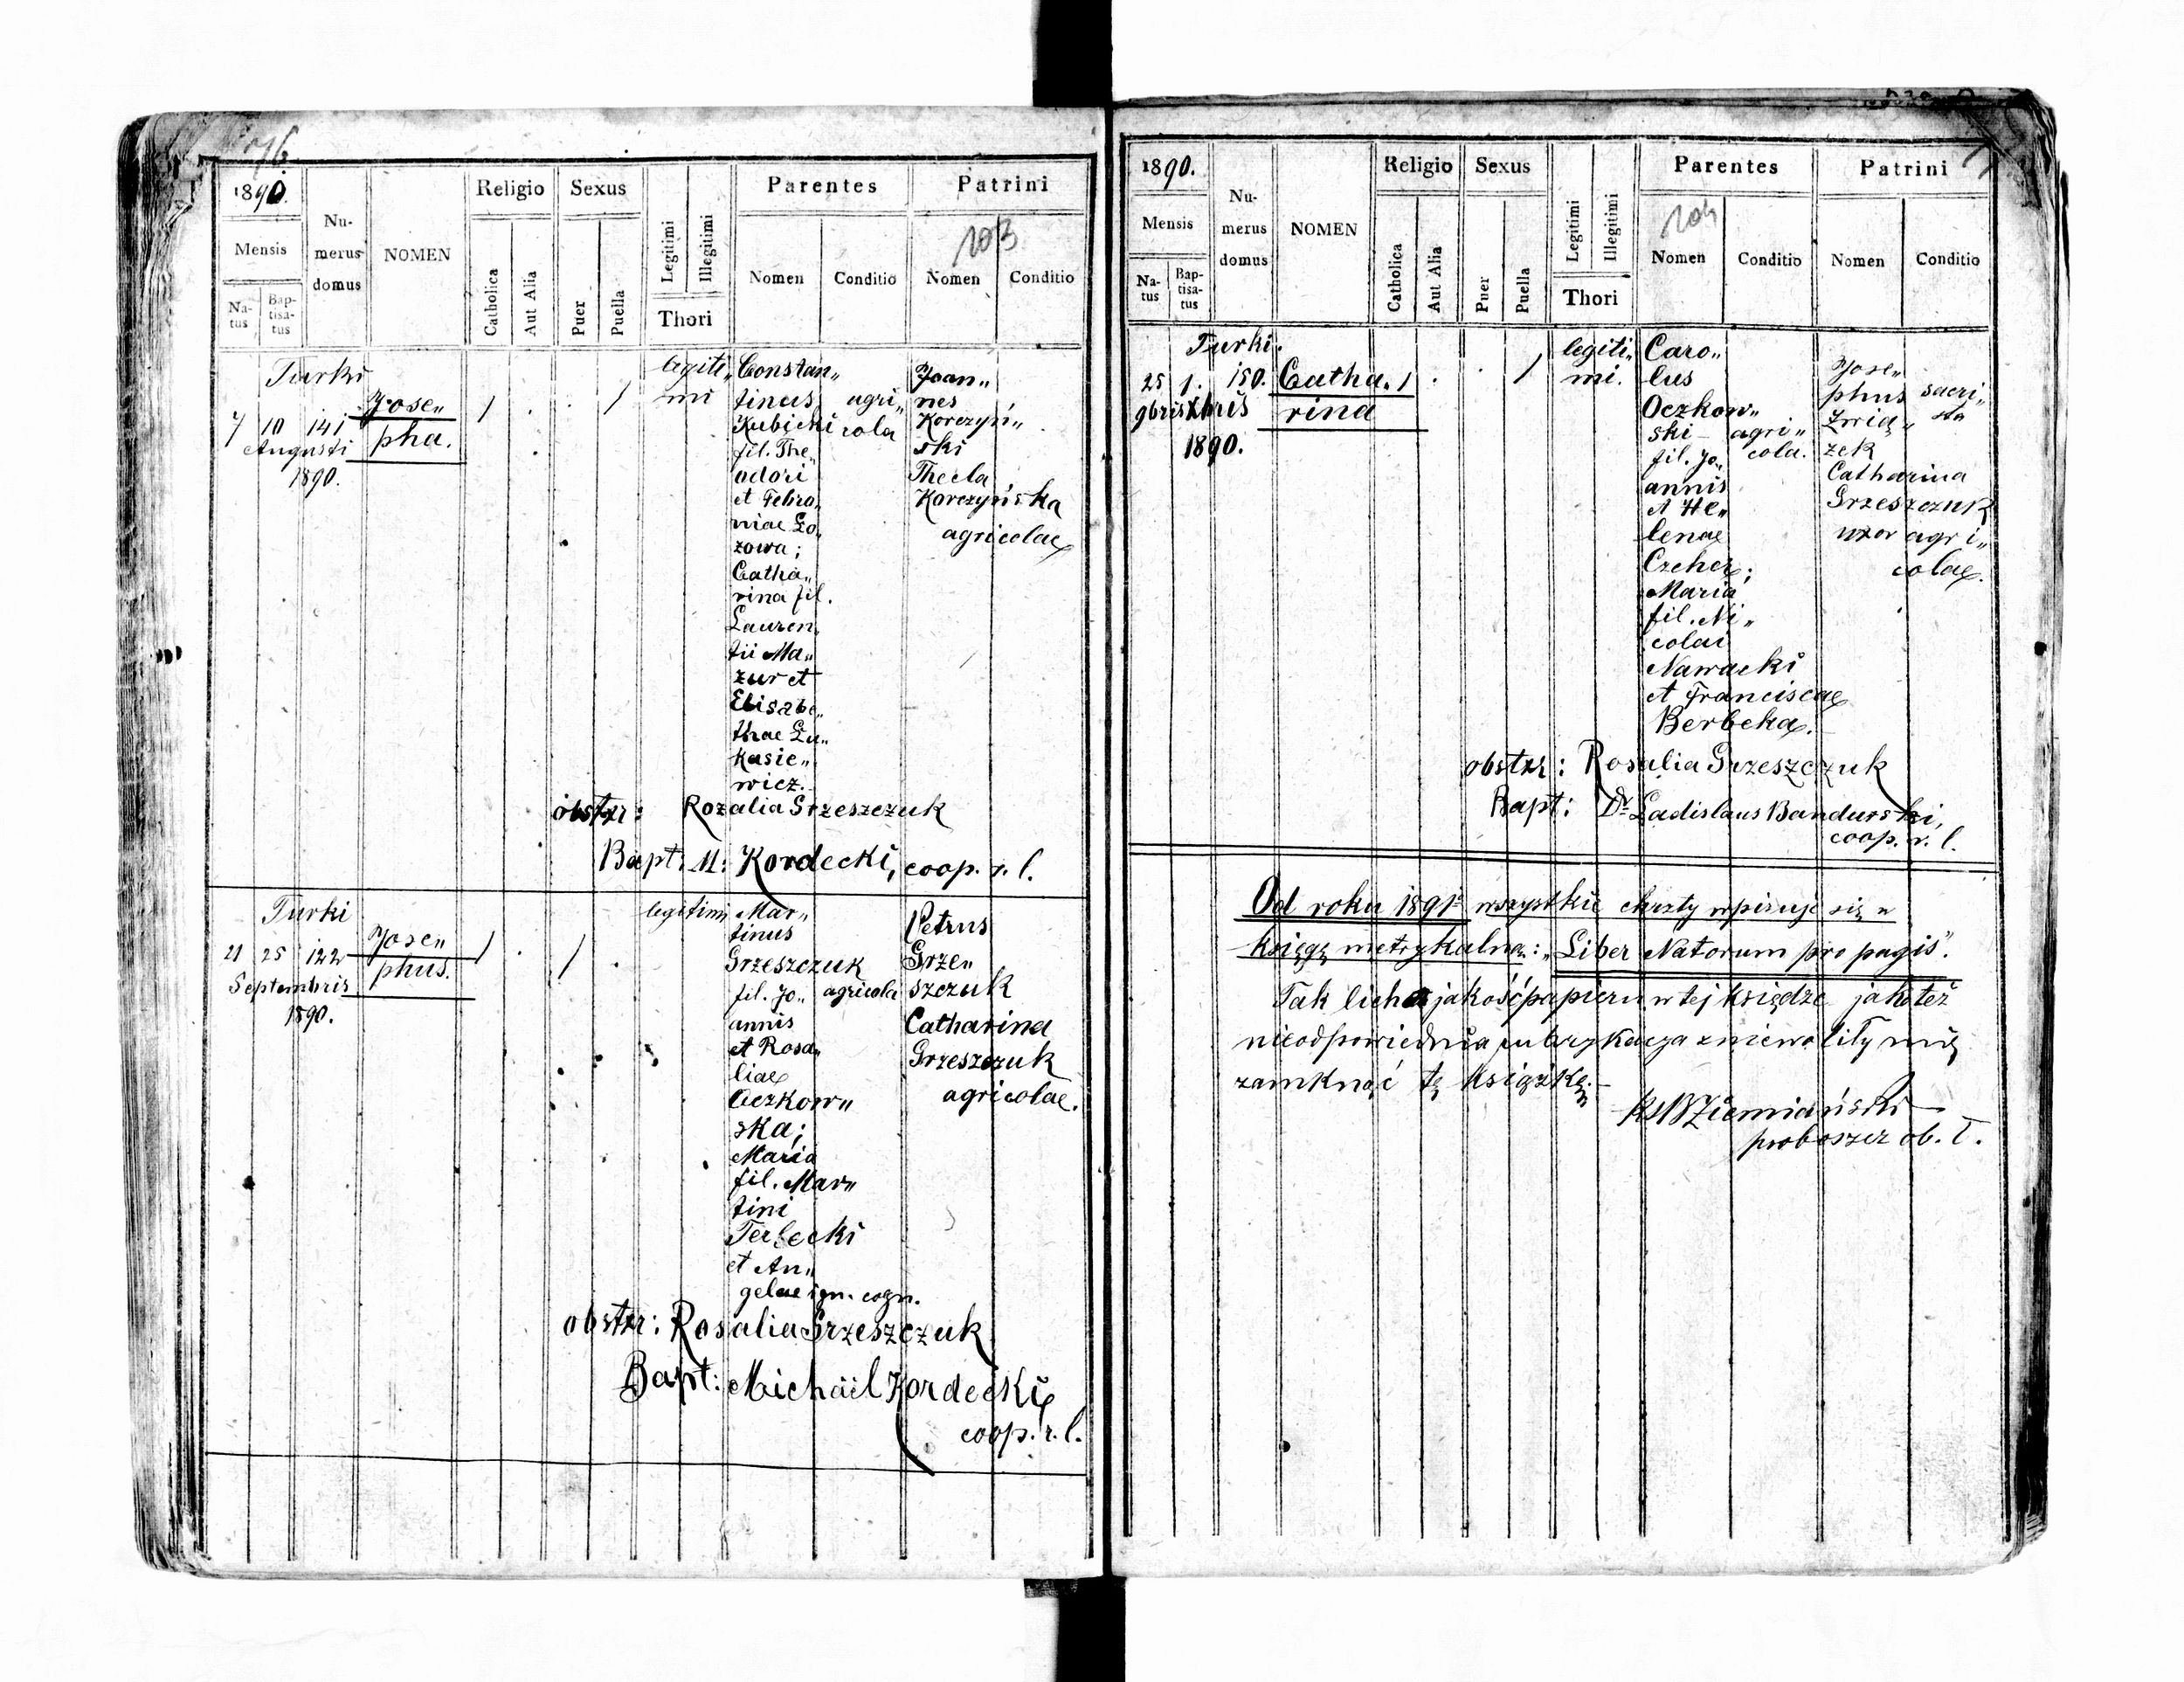 76
1890.
Mensis
Na-
tus
Bap-
tisa-
tus
Nu-
merus
domus
NOMEN
Religio
Catholica
Aut Alia
Sexus
Puer
Puella
Legitimi
Illegitimi
Thori
Parentes
Nomen
Conditio
Patrini
103
Nomen
Conditio
Turki
7 10 141
Augusti
1890.
Jose„
pha.
legiti„
mi
Constan„
tinus agri„
Kubicki cola
fil. The„
odori
et Febro„
niae Ło„
zowa;
Catha„
rina fil.
Lauren„
tii Ma„
zur et
Elisabe„
thae Łu„
kasie„
wicz.
Joan„
nes
Korczyń„
ski
Thecla
Korczyńska
agricolae
obstxr: Rozalia Grzeszczuk
Bapt: M: Kordecki, coop. r. l.
Turki
21 25 122
Septembris
1890.
Jose„
phus.
legitimi
Mar„
tinus
Grzeszczuk
fil. Jo„ agricola
annis
et Rosa„
liae
Oczkow„
ska;
Maria
fil. Mar„
tini
Terlecki
et An„
gelae ign. cogn.
Petrus
Grze„
szczuk
Catharina
Grzeszczuk
agricolae.
obstxr: Rosalia Grzeszczuk
Bapt: Michaël Kordecki
coop. r. l.
1890.
Mensis
Na-
tus
Bap-
tisa-
tus
Nu-
merus
domus
NOMEN
Religio
Catholica
Aut Alia
Sexus
Puer
Puella
Legitimi
Illegitimi
Thori
Parentes
104
Nomen
Conditio
Patrini
Nomen
Conditio
Turki.
25 1. 150.
9bris Xbris
1890.
Catha„
rina
legiti„
mi.
Caro„
lus
Oczkow„
ski agri„
fil. Jo„ cola.
annis
et He„
lenae
Czcher;
Maria
fil. Ni„
colai
Nawacki
et Franciscae
Berbeka.
Jose„
phus sacri„
Zwią„ sta
zek
Catharina
Grzeszczuk
uxor agri„
colae.
obstxr: Rosalia Grzeszczuk
Bapt: Dr Ladislaus Bandurski,
coop. r. l.
Od roku 1891 wszystkie chrzty wpisuje się w
księgę metrykalną: „Liber Natorum pro pagis".
Tak licha jakość papieru w tej księdze jakoteż
nieodpowiednia rubrykacya zniewoliły mię
zamknąć tę książkę.—
Ks B Ziemiański
proboszcz ob. ł.